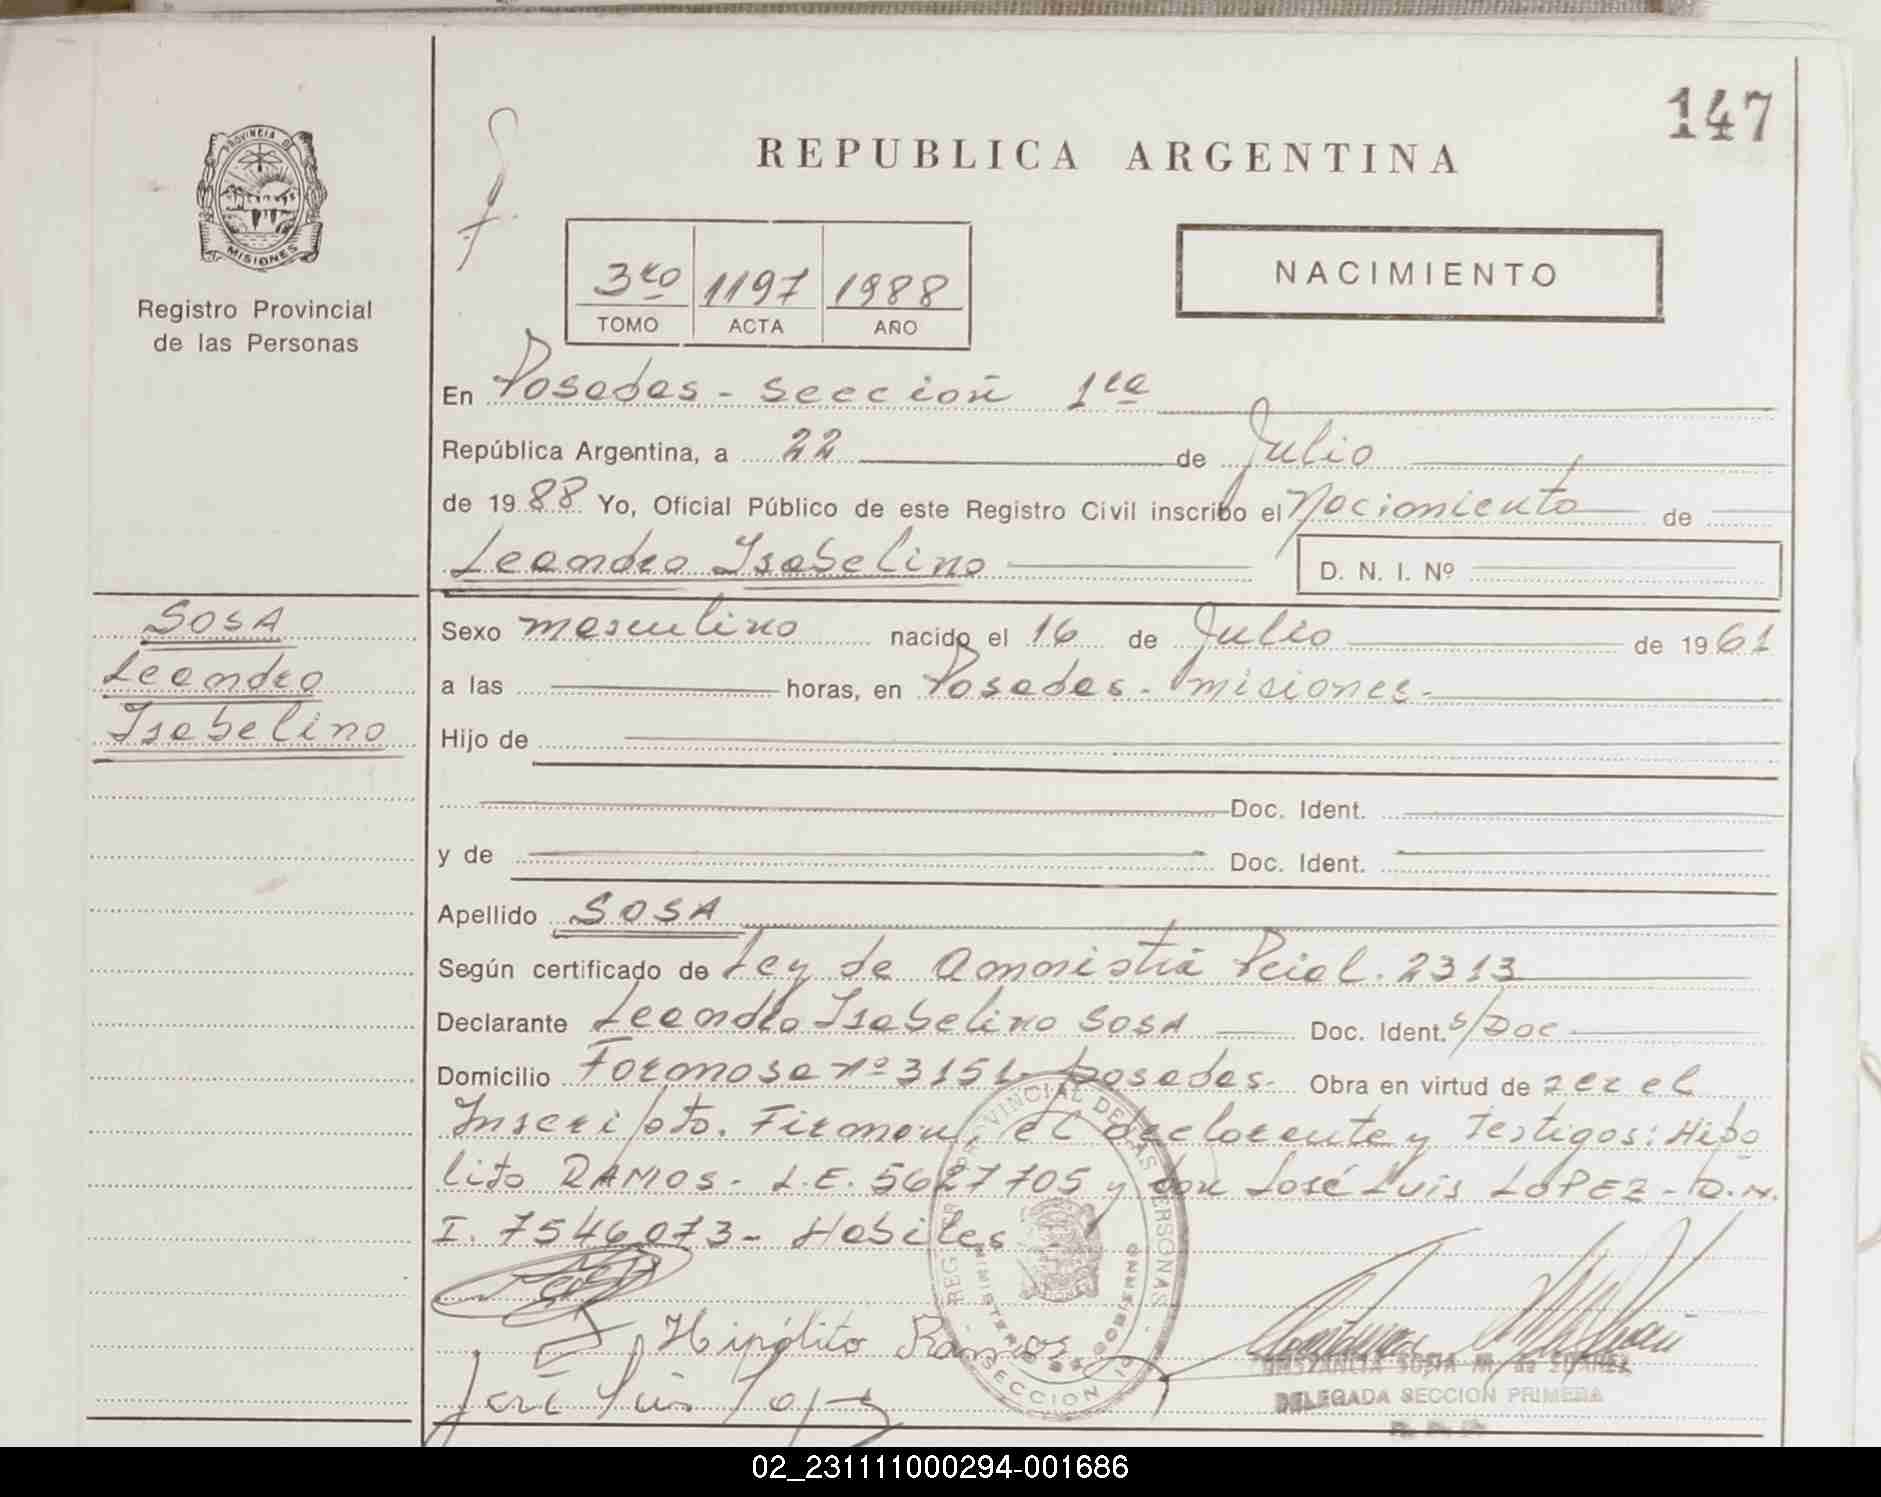 147
REPUBLICA ARGENTINA
PROVINCIA DE
MISIONES
Registro Provincial
de las Personas
3ro 1197 1988
TOMO ACTA AÑO
NACIMIENTO
En Posadas - Sección 1ra
República Argentina, a 22 de Julio
de 1988 Yo, Oficial Público de este Registro Civil inscribo el Nacimiento de
Leandro Isabelino D. N. I. Nº
SOSA
Leandro
Isabelino
Sexo masculino nacido el 16 de Julio de 1961
a las horas, en Posadas - Misiones -
Hijo de
Doc. Ident.
y de Doc. Ident.
Apellido SOSA
Según certificado de Ley de Amnistia Pcial. 2313
Declarante Leandro Isabelino SOSA Doc. Ident. s/Doc
Domicilio Formosa nº 3151 - Posadas - Obra en virtud de ser el
Inscripto. Firman, el declarante y Testigos: Hipo
lito RAMOS - L.E. 5627705 y don José Luis LOPEZ - D.N.
I. 7546073 - Habiles
REG PROVINCIAL DE LAS PERSONAS
MINISTERIO DE GOBIERNO
SECCION 1a
Hipólito Ramos
José Luis Lopez
CONSTANCIA SOFIA M. de SUAREZ
DELEGADA SECCION PRIMERA
R. P. P.
02_231111000294-001686